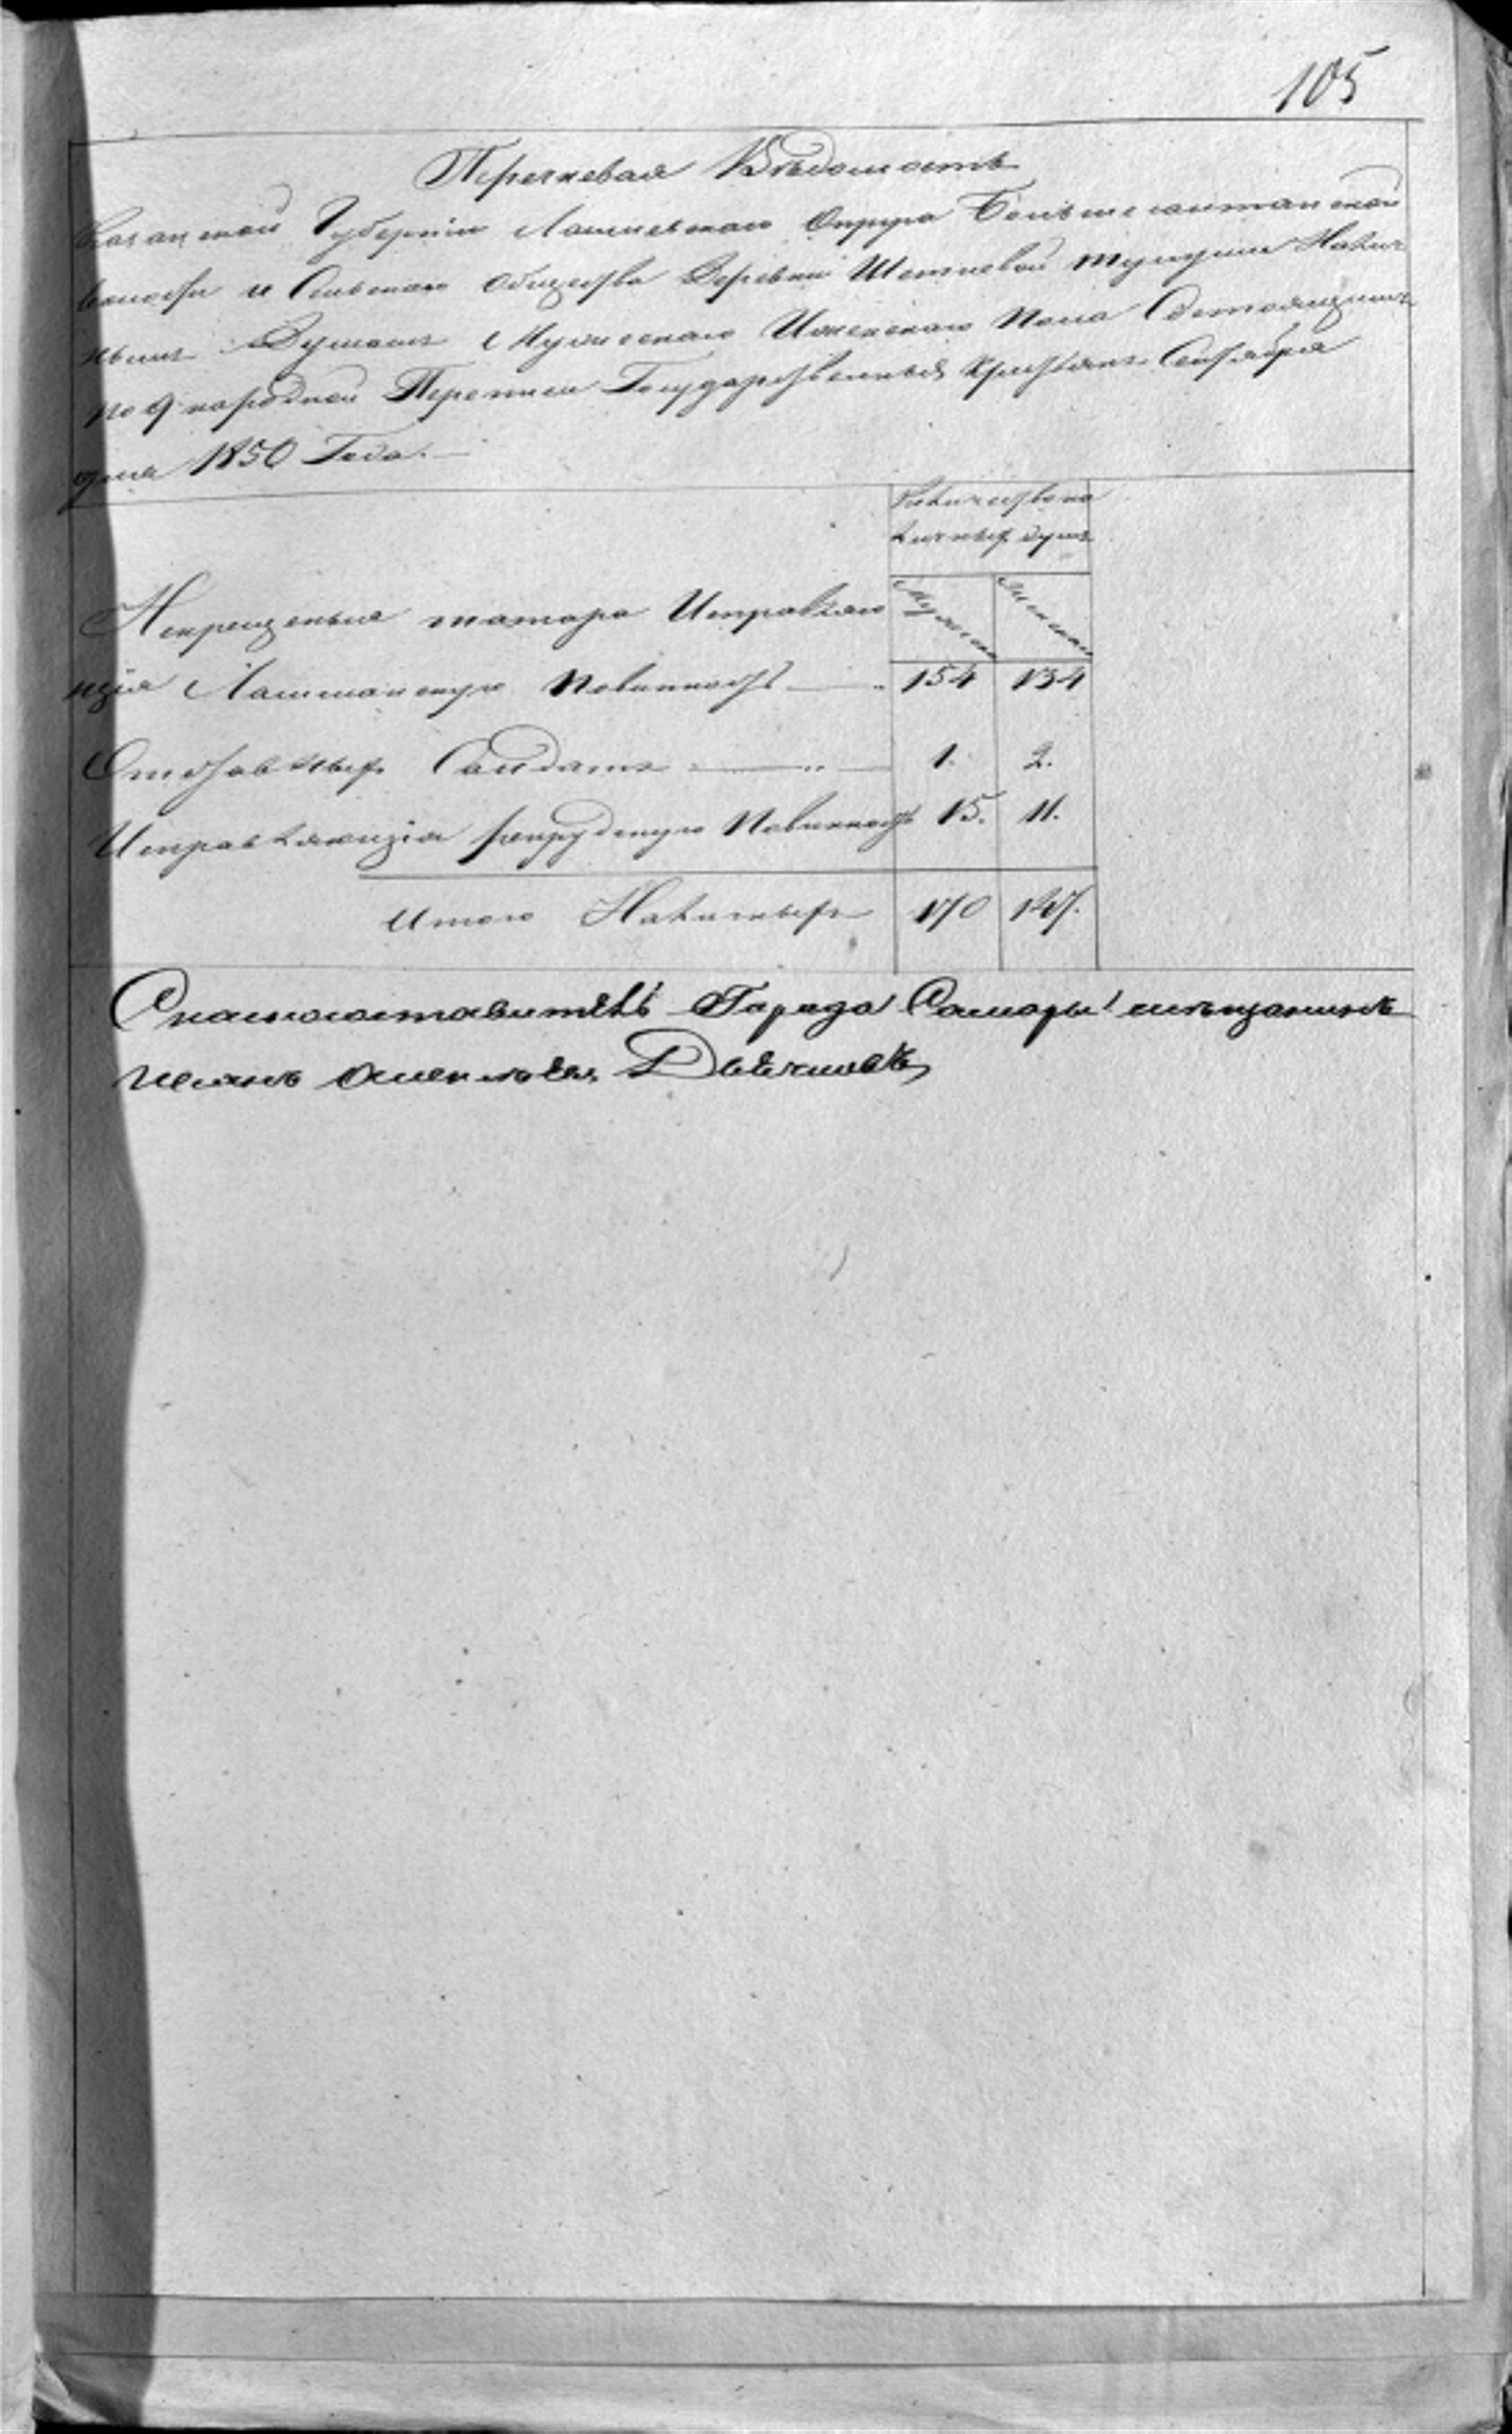 105
Перечневая Вѣдомость
Казанской Губерніи Лаишевскаго Округа
волости и Сельскаго Общества Деревни тушуши Налич
нымъ Душамъ Мужескаго Женскаго Пола Состоящимъ
по 9 народной Переписи Государственныхъ Крестьянъ Сентября
дня 1850 Года.
Количество на
личныхъ душъ
Мужеска Женска
Некрещеныя татара Исправляю
щія Лашманскую Повинность 154 134
Отставныхъ Салдатъ 1. 2.
Исправляющія рекрудскую Повинность 15. 11.
Итого Наличныхъ 170 147.
Города Самары мѣщанинъ